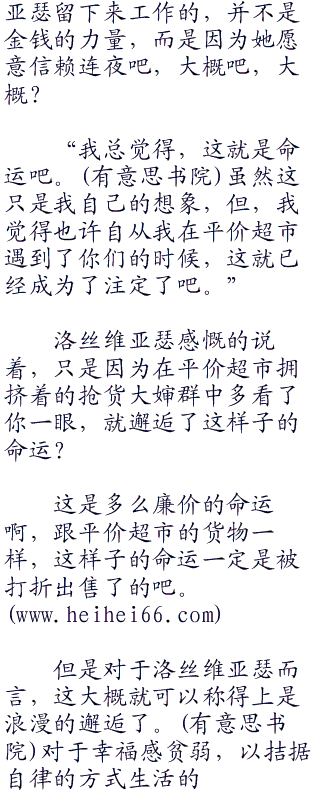 亚瑟留下来工作的，并不是
金钱的力量，而是因为她愿
意信赖连夜吧，大概吧，大
概？
“我总觉得，这就是命
运吧。(有意思书院)虽然这
只是我自己的想象，但，我
觉得也许自从我在平价超市
遇到了你们的时候，这就已
经成为了注定了吧。”
洛丝维亚瑟感慨的说
着，只是因为在平价超市拥
挤着的抢货大婶群中多看了
你一眼，就邂逅了这样子的
命运？
这是多么廉价的命运
啊，跟平价超市的货物一
样，这样子的命运一定是被
打折出售了的吧。
(www.heihei66.com)
但是对于洛丝维亚瑟而
言，这大概就可以称得上是
浪漫的邂逅了。(有意思书
院)对于幸福感贫弱，以拮据
自律的方式生活的